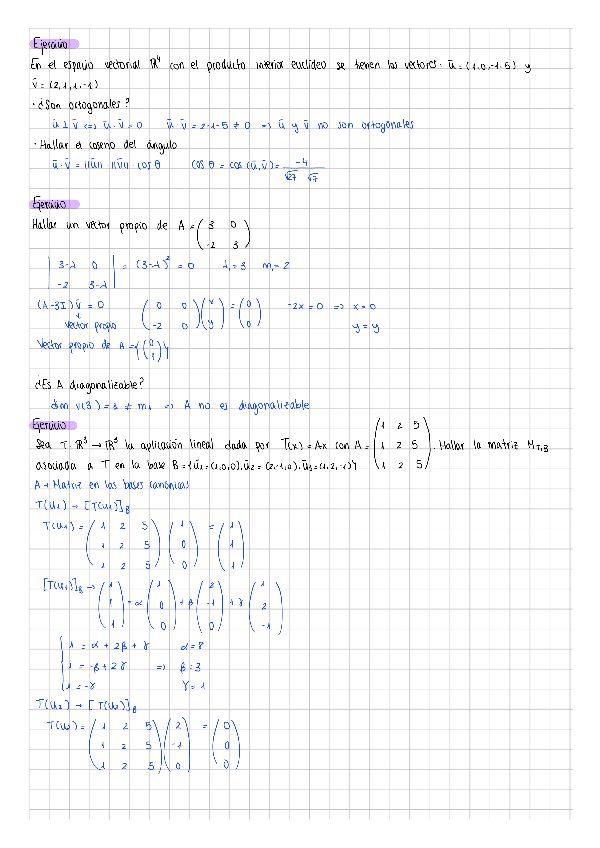 Ejercicio
En el espacio vectorial ℝ⁴ con el producto interior euclídeo se tienen los vectores: ū = (1,0,-1,5) y
v̄ = (2,1,1,-1)
· ¿Son ortogonales?
ū ⊥ v̄ <=> ū · v̄ = 0 ū · v̄ = 2-1-5 ≠ 0 => ū y v̄ no son ortogonales
· Hallar el coseno del ángulo
ū · v̄ = ||ū|| · ||v̄|| · cos θ cos θ = cos (ū,v̄) = -4 / √27 √7
Ejercicio
Hallar un vector propio de A = (3 0
-2 3)
|3-λ 0
-2 3-λ| = (3-λ)² = 0 λ₁ = 3 m₁ = 2
(A-3I) v̄ = 0 (0 0 / -2 0) (x / y) = (0 / 0) -2x = 0 => x = 0
vector propio y = y
Vector propio de A = {(0 / 1)}
¿Es A diagonalizable?
dim V(3) = 1 ≠ m₁ => A no es diagonalizable
Ejercicio
Sea T: ℝ³ → ℝ³ la aplicación lineal dada por T(x) = Ax con A = (1 2 5 / 1 2 5 / 1 2 5). Hallar la matriz M_T,B
asociada a T en la base B = {ū₁ = (1,0,0), ū₂ = (2,-1,0), ū₃ = (1,2,-1)}
A → Matriz en las bases canónicas
T(u₁) → [T(u₁)]_B
T(u₁) = (1 2 5 / 1 2 5 / 1 2 5) (1 / 0 / 0) = (1 / 1 / 1)
[T(u₁)]_B → (1 / 1 / 1) = α (1 / 0 / 0) + β (2 / -1 / 0) + γ (1 / 2 / -1)
1 = α + 2β + γ α = 8
1 = -β + 2γ => β = 3
1 = -γ γ = 1
T(u₂) → [T(u₂)]_B
T(u₂) = (1 2 5 / 1 2 5 / 1 2 5) (2 / -1 / 0) = (0 / 0 / 0)